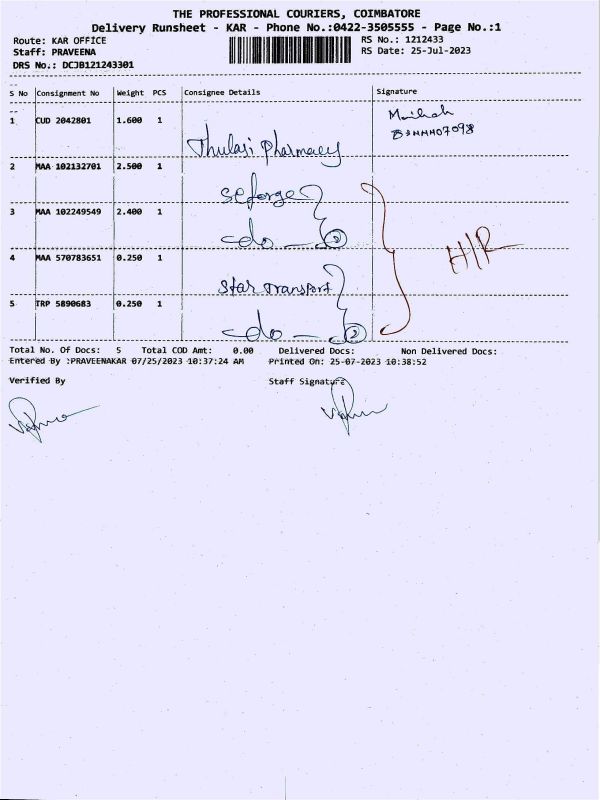 THE PROFESSIONAL COURIERS, COIMBATORE
Delivery Runsheet - KAR - Phone No.:0422-3505555 - Page No.:1
Route: KAR OFFICE
RS No.: 1212433
Staff: PRAVEENA
RS Date: 25-Jul-2023
DRS No.: DCJB121243301
S No Consignment No Weight PCS Consignee Details Signature
1 CUD 2042801 1.600 1 Thulasi Pharmacy
2 MAA 102132701 2.500 1 Seforge
3 MAA 102249549 2.400 1 -do- 2
H/R
4 MAA 570783651 0.250 1 Star Transport
5 TRP 5890683 0.250 1 -do- 2
Total No. Of Docs: 5 Total COD Amt: 0.00 Delivered Docs: Non Delivered Docs:
Entered By :PRAVEENAKAR 07/25/2023 10:37:24 AM Printed On: 25-07-2023 10:38:52
Verified By Staff Signature